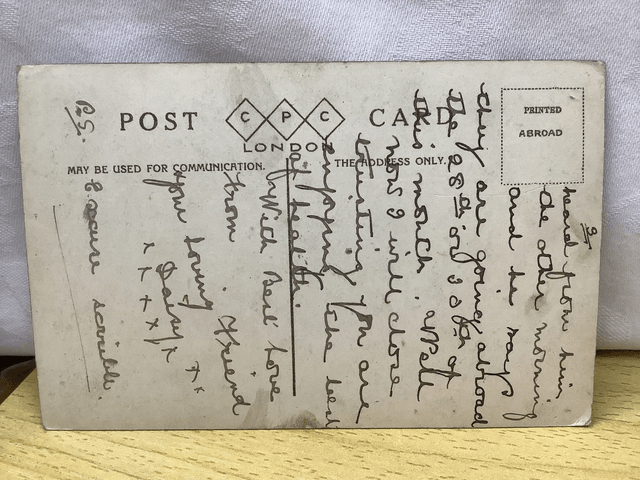 POST CPC CARD
LONDON
MAY BE USED FOR COMMUNICATION. THE ADDRESS ONLY.
PRINTED
ABROAD
heard from him
the other morning
and he says
they are going abroad
the 28th or of
this month. Well
now I will close
trusting you are
enjoying the best
of health.
With Best Love
from Friend
Your Loving
Daisy x x
x x x x x
P.S.
Excuse scribble.